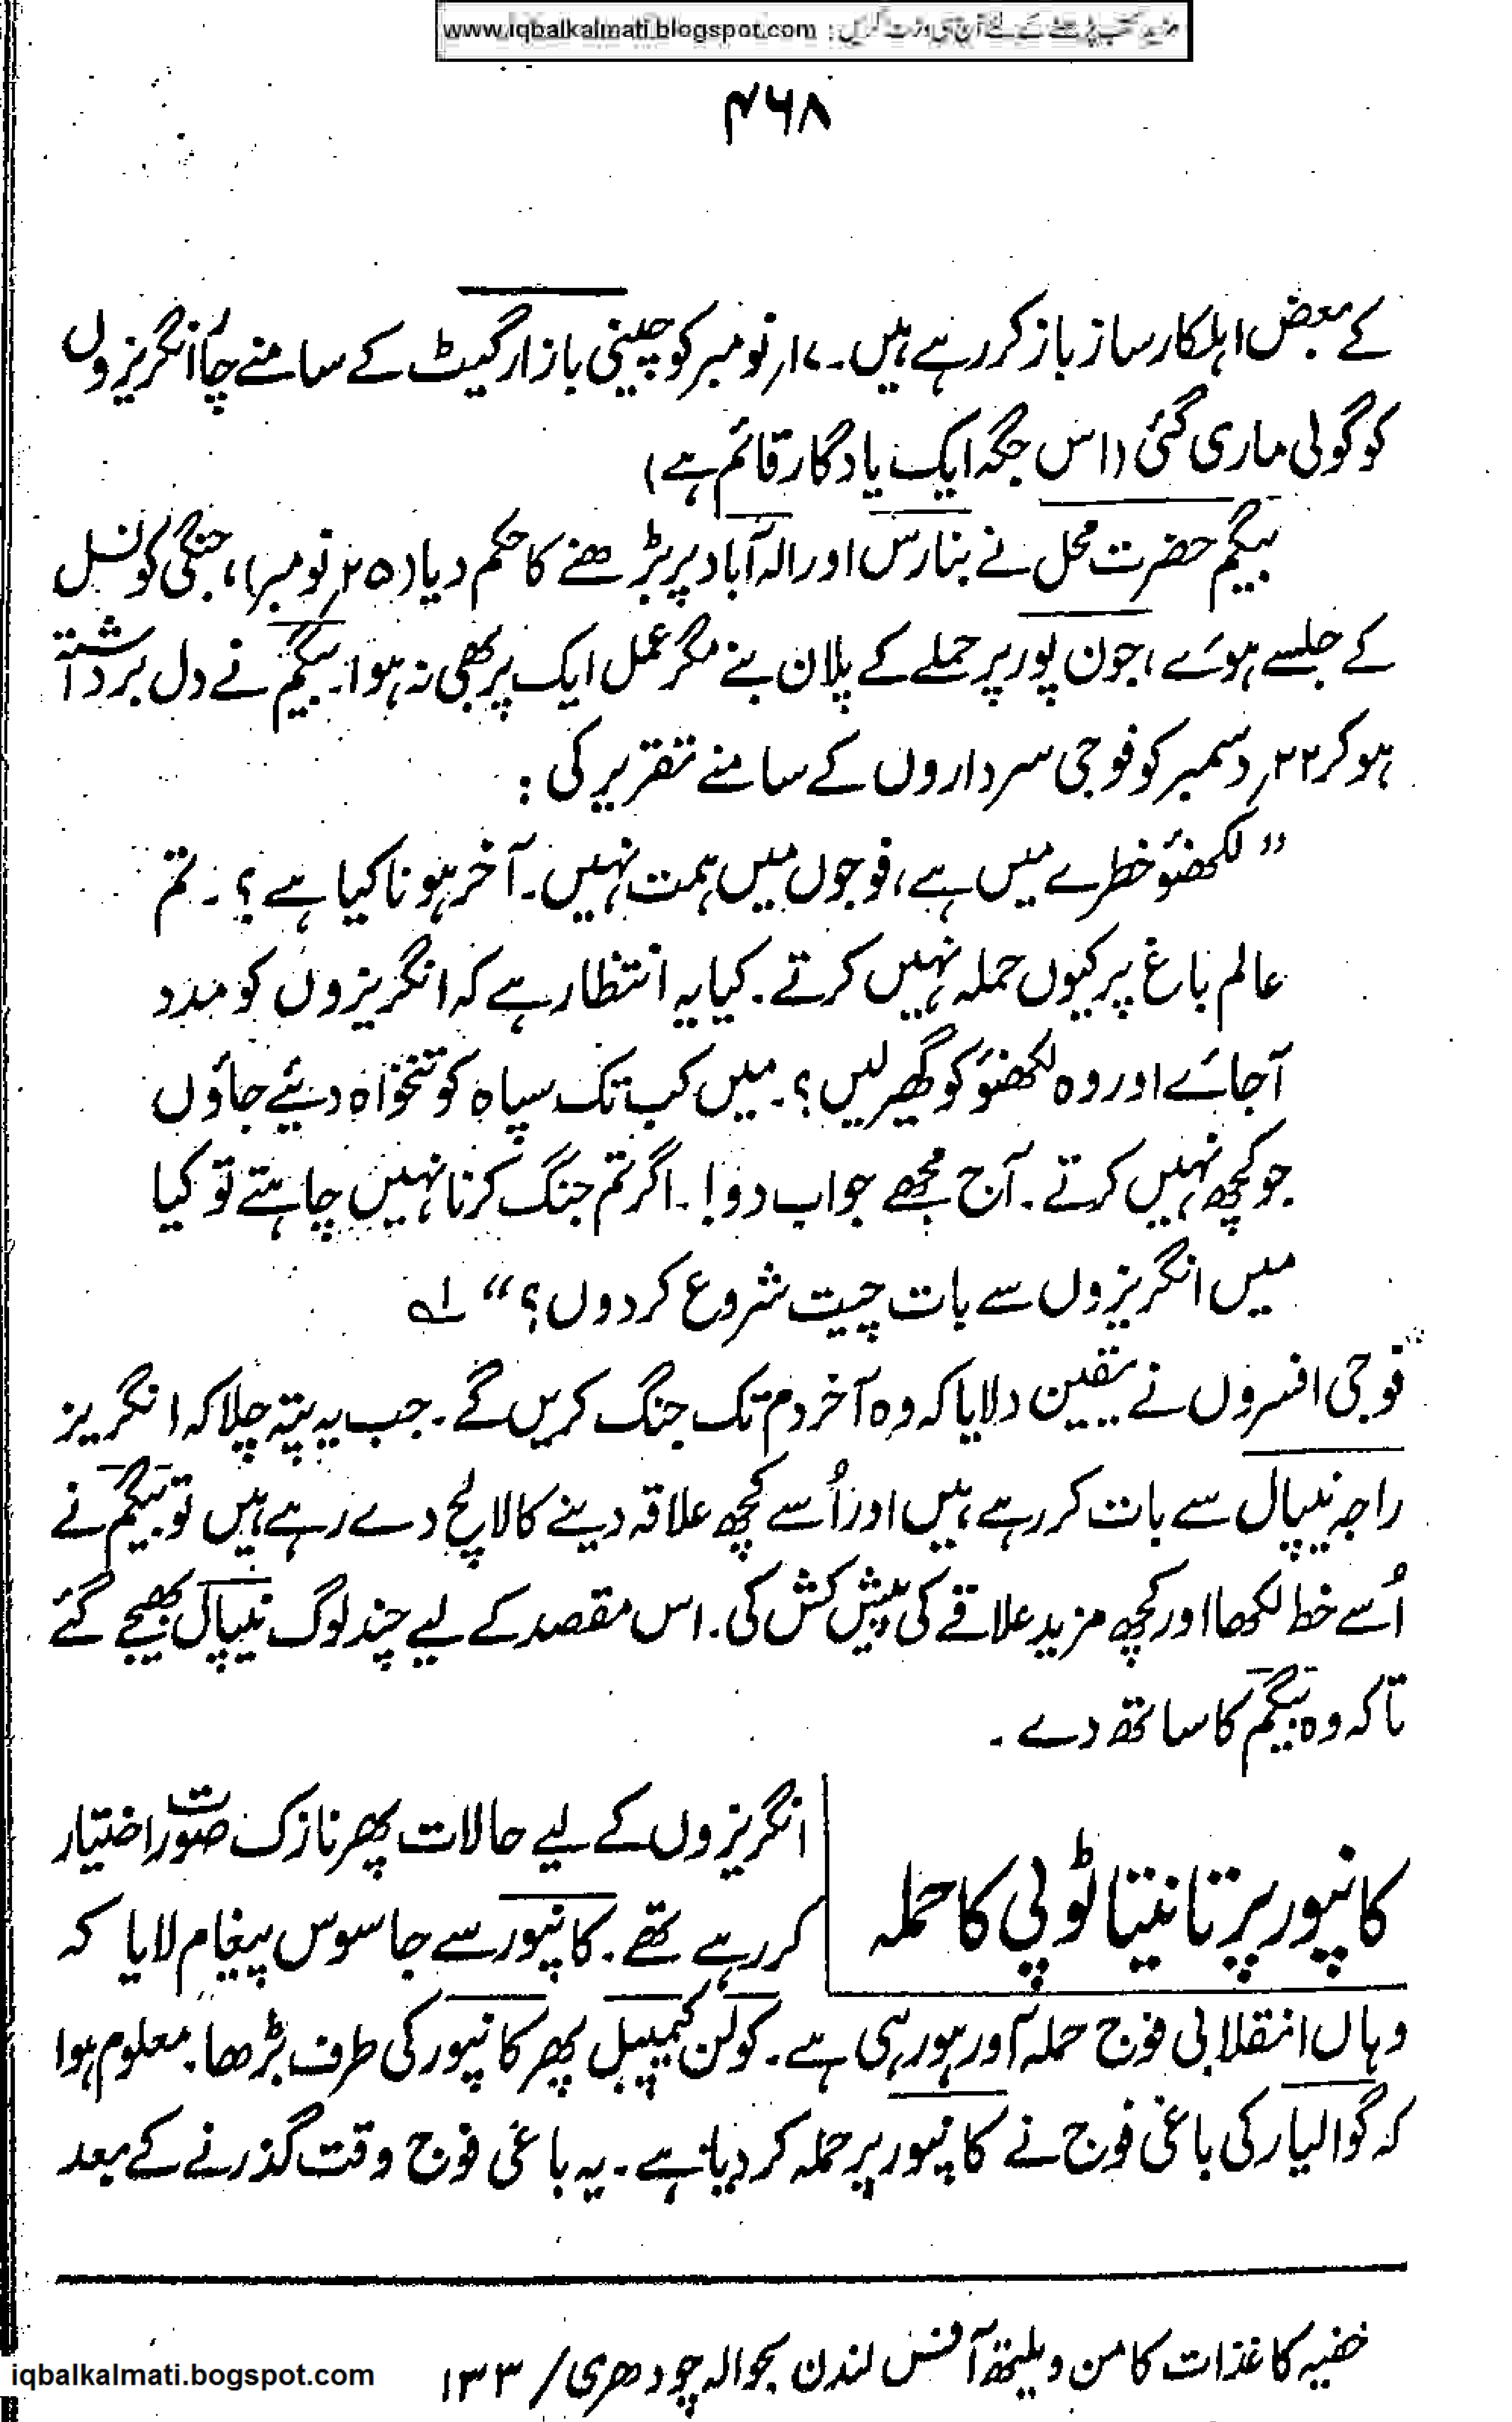 مزید کتب پڑھنے کے لئے آج ہی وزٹ کریں : www.iqbalkalmati.blogspot.com
۴۶۸
کے بعض اہلکار ساز باز کر رہے ہیں۔ ۱۷؍ نومبر کو چینی بازار گیٹ کے سامنے چار انگریزوں
کو گولی ماری گئی (اس جگہ ایک یادگار قائم ہے)
بیگم حضرت محل نے بنارس اور الہ آباد پر بڑھنے کا حکم دیا (۲۵؍ نومبر)، جنگی کونسل
کے جلسے ہوئے، جون پور پر حملے کے پلان بنے مگر عمل ایک پر بھی نہ ہوا۔ بیگم نے دل برداشتہ
ہو کر ۲۲؍ دسمبر کو فوجی سرداروں کے سامنے تقریر کی :
”لکھنؤ خطرے میں ہے، فوجوں میں ہمت نہیں۔ آخر ہونا کیا ہے ؟۔ تم
عالم باغ پر کیوں حملہ نہیں کرتے۔ کیا یہ انتظار ہے کہ انگریزوں کو مدد
آجائے اور وہ لکھنؤ کو گھیر لیں ؟۔ میں کب تک سپاہ کو تنخواہ دیئے جاؤں
جو کچھ نہیں کرتے۔ آج مجھے جواب دو!۔ اگر تم جنگ کرنا نہیں چاہتے تو کیا
میں انگریزوں سے بات چیت شروع کر دوں ؟“ ۱؎
فوجی افسروں نے یقین دلایا کہ وہ آخر دم تک جنگ کریں گے۔ جب یہ پتہ چلا کہ انگریز
راجہ نیپال سے بات کر رہے ہیں اور اُسے کچھ علاقہ دینے کا لالچ دے رہے ہیں تو بیگم نے
اُسے خط لکھا اور کچھ مزید علاقے کی پیش کش کی۔ اس مقصد کے لیے چند لوگ نیپال بھیجے گئے
تاکہ وہ بیگم کا ساتھ دے۔
کانپور پر تانیتا ٹوپی کا حملہ
انگریزوں کے لیے حالات پھر نازک صورت اختیار
کر رہے تھے۔ کانپور سے جاسوس پیغام لایا کہ
وہاں انقلابی فوج حملہ آور ہو رہی ہے۔ کولن کیمپبل پھر کانپور کی طرف بڑھا۔ معلوم ہوا
کہ گوالیار کی باغی فوج نے کانپور پر حملہ کر دیا ہے۔ یہ باغی فوج وقت گذرنے کے بعد
خفیہ کاغذات کامن ویلیتھ آفس لندن بحوالہ چودھری / ۱۳۳
iqbalkalmati.bogspot.com